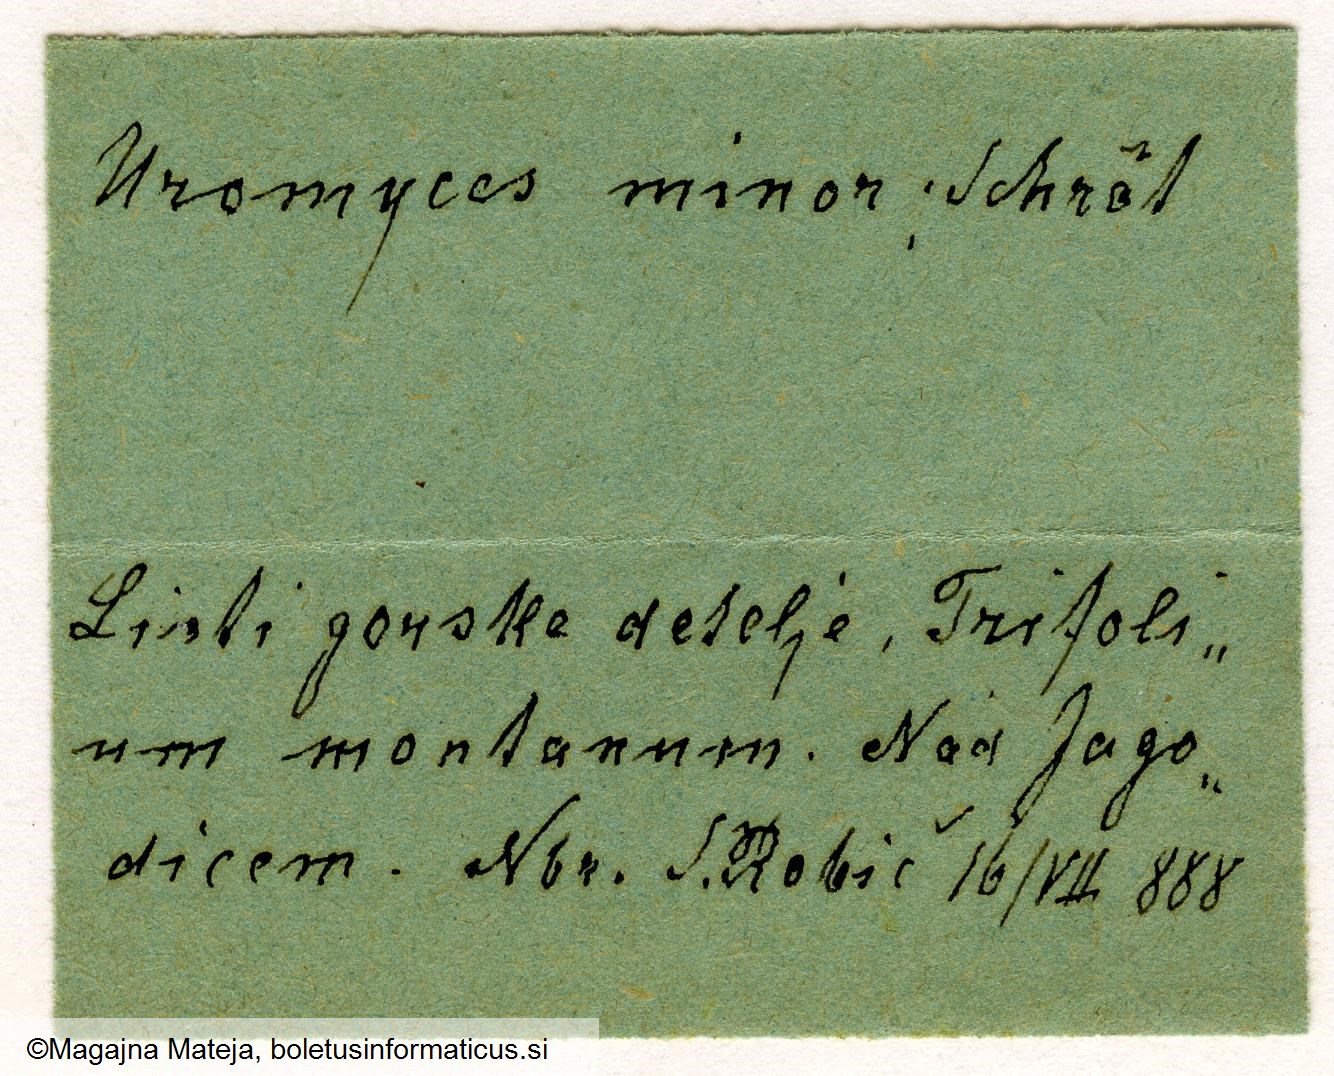 Uromyces minor, Schröt
Listi gorske detelje, Trifoli„
um montanum. Nad Jago„
dicem. Nbr. S. Robič 16/VII 888
©Magajna Mateja, boletusinformaticus.si